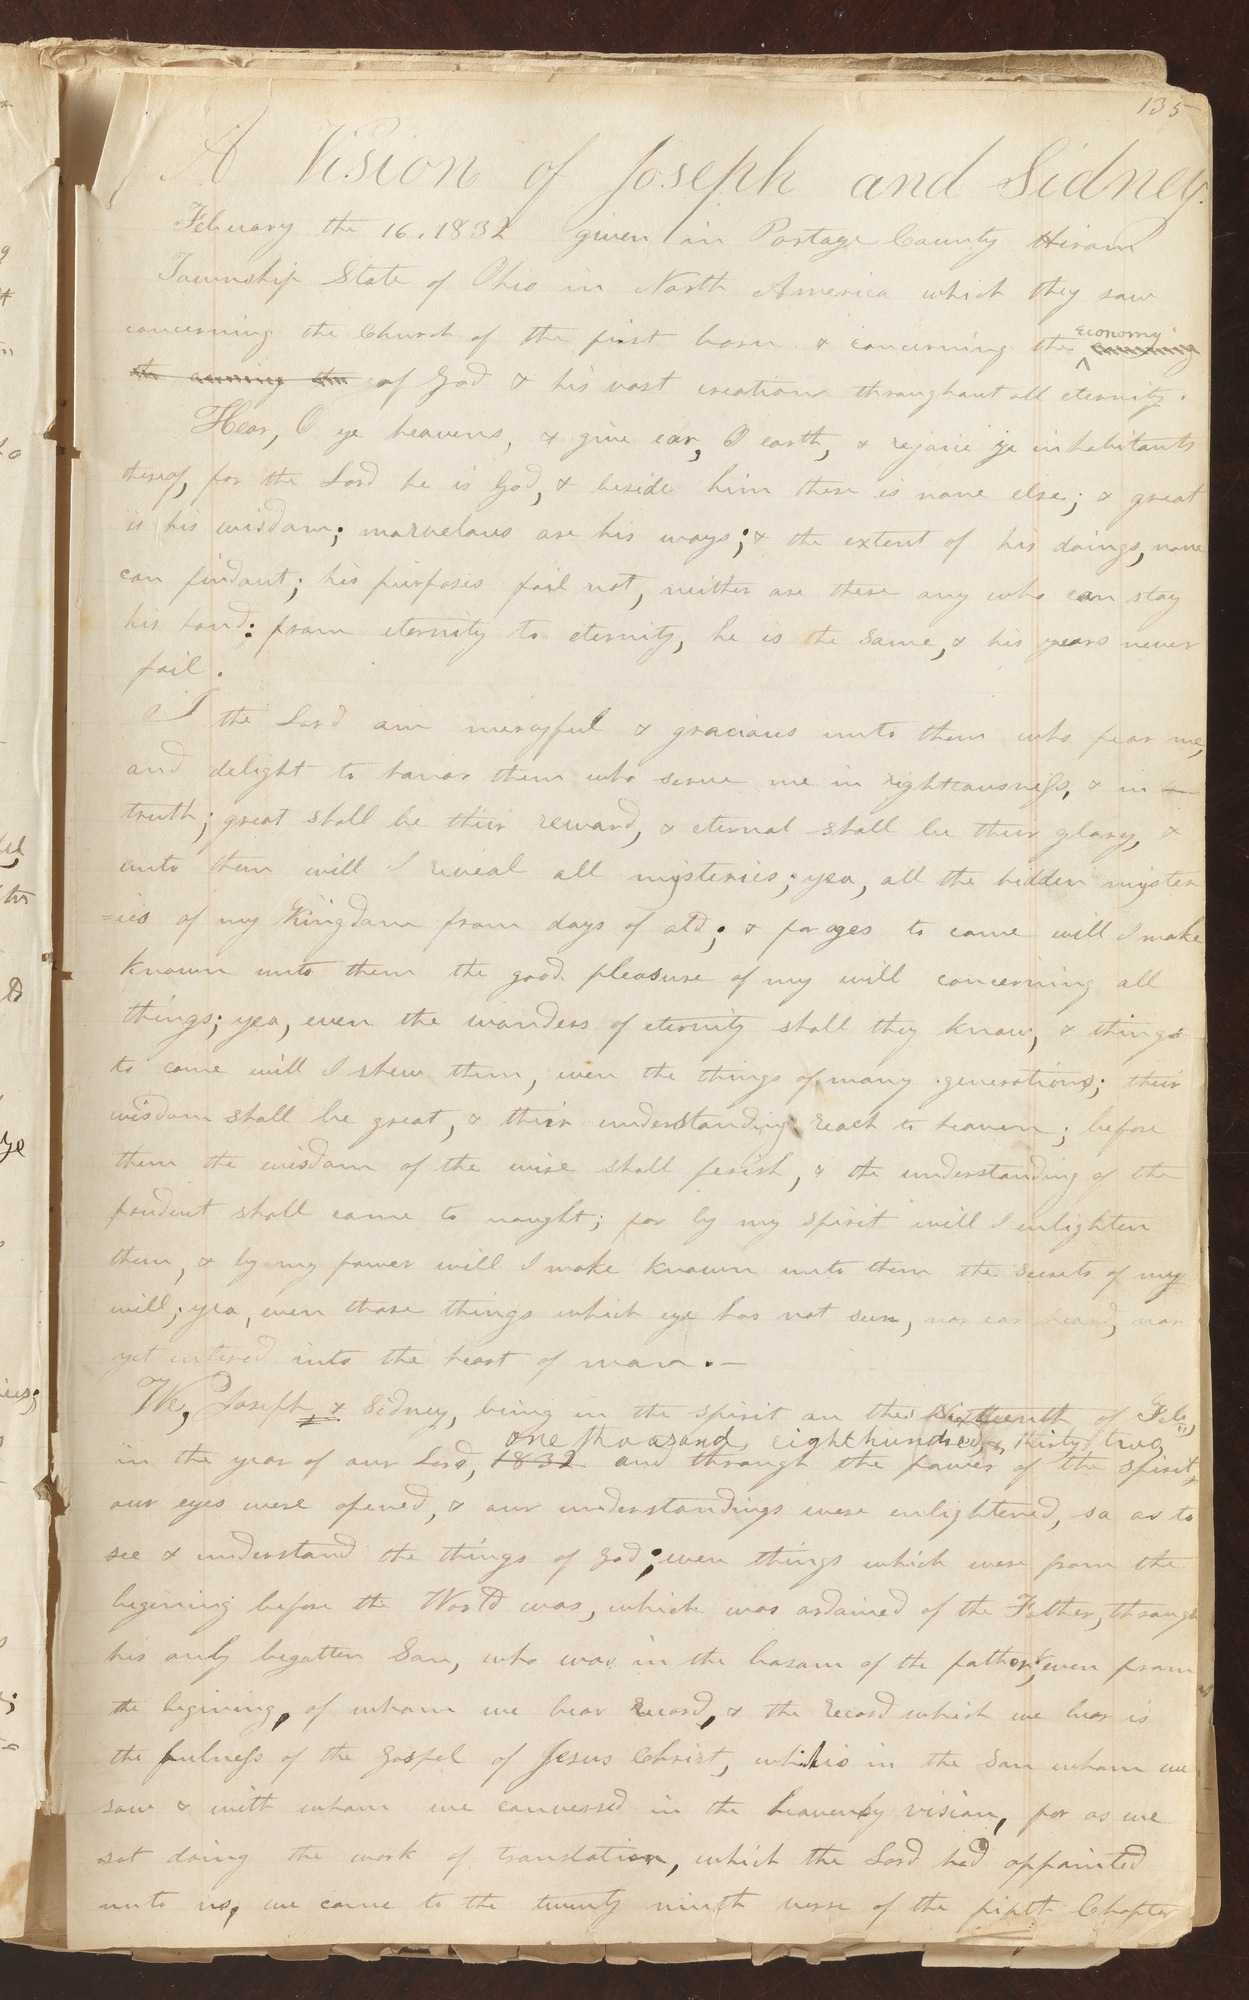 135
A Vision of Joseph and Sidney.
February the 16. 1832 given in Portage County Hiram
Township State of Ohio in North America which they saw
concerning the Church of the first born & concerning the economy
of God & his vast creation throughout all eternity.
Hear, O ye heavens, & give ear, O earth, & rejoice ye inhabitants
thereof, for the Lord he is God, & beside him there is none else; & great
is his wisdom; marvelous are his ways; & the extent of his doings, none
can find out; his purposes fail not, neither are there any who can stay
his hand: from eternity to eternity, he is the same, & his years never
fail.
I the Lord am mercyful & gracious unto them who fear me,
and delight to honor them who serve me in righteousness, & in —
truth; great shall be their reward, & eternal shall be their glory, &
unto them will I reveal all mysteries; yea, all the hidden myster
=ies of my Kingdom from days of old; & for ages to come will I make
known unto them the good pleasure of my will concerning all
things; yea, even the wonders of eternity shall they know, & things
to come will I shew them, even the things of many generations; their
wisdom shall be great, & their understanding reach to heaven; before
them the wisdom of the wise shall perish, & the understanding of the
prudent shall come to nought; for by my spirit will I enlighten
them, & by my power will I make known unto them the secrets of my
will; yea, even those things which eye has not seen, nor ear heard, nor
yet entered into the heart of man. —
We, Joseph & Sidney, being in the spirit on the sixteenth of Feb,
one thousand eight hundred & thirty two,
in the year of our Lord, 1832 and through the power of the spirit,
our eyes were opened, & our understandings were enlightened, so as to
see & understand the things of God; even things which were from the
begining before the World was, which was ordained of the Father, through
his only begotten Son, who was in the bosom of the father, even from
the begining, of whom we bear record, & the record which we bear is
the fulness of the gospel of Jesus Christ, which is in the Son whom we
saw & with whom we conversed in the heavenly vision, for as we
sat doing the work of translation, which the Lord had appointed
unto us, we came to the twenty ninth verse of the fifth Chapter